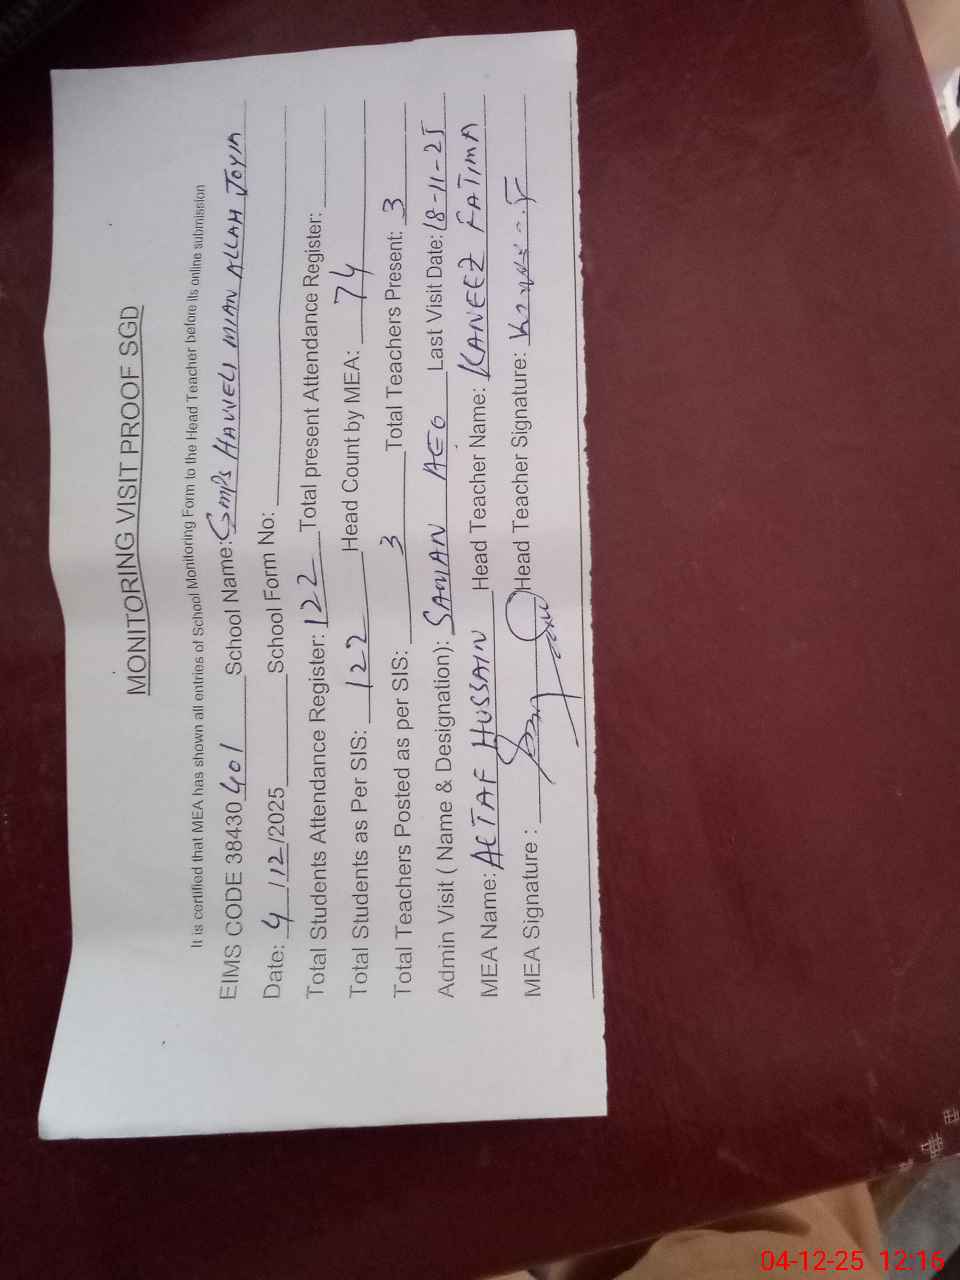 MONITORING VISIT PROOF SGD
It is certified that MEA has shown all entries of School Monitoring Form to the Head Teacher before its online submission
EIMS CODE 38430 401 School Name: GMPS HAVVELI MIAN ALLAH JOYIA
Date: 4/12/2025 School Form No:
Total Students Attendance Register: 122 Total present Attendance Register:
Total Students as Per SIS: 122 Head Count by MEA: 74
Total Teachers Posted as per SIS: 3 Total Teachers Present: 3
Admin Visit ( Name & Designation): AEO Last Visit Date: 18-11-25
MEA Name: ALTAF HUSSAIN Head Teacher Name: KANEEZ FATIMA
MEA Signature : Head Teacher Signature:
04-12-25 12:16